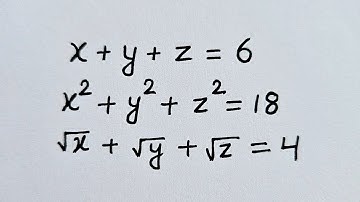 x + y + z = 6
x² + y² + z² = 18
√x + √y + √z = 4